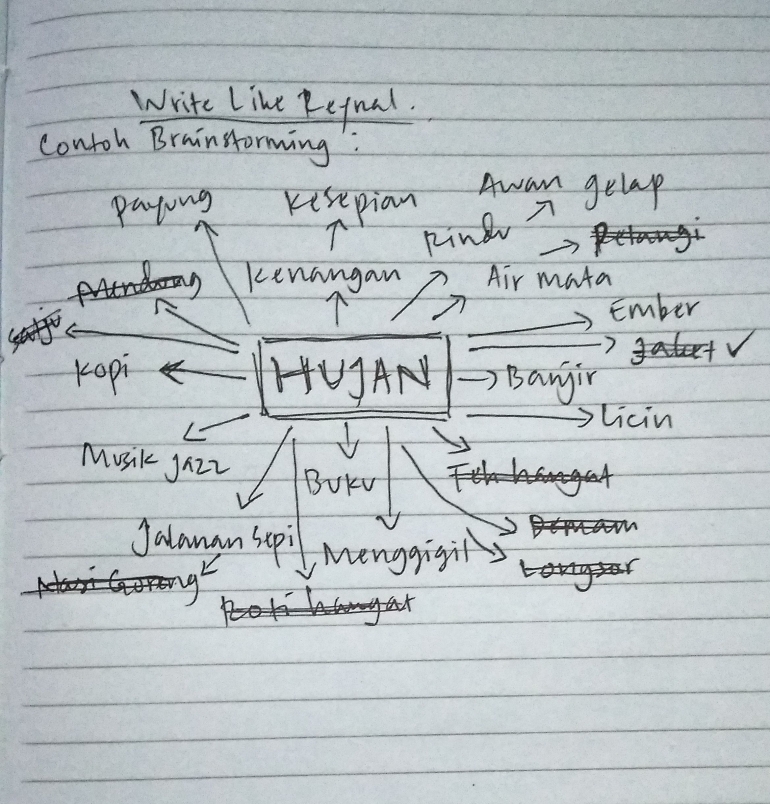 Write Like Reynal.
Contoh Brainstorming :
Awan gelap
Payung
Kesepian
Rindu
Pelangi
Mendung
Kenangan
Air mata
Ember
Salju
Jaket ✓
Kopi
HUJAN
Banjir
Licin
Musik Jazz
Buku
Teh hangat
Jalanan Sepi
Menggigil
Demam
Longsor
Nasi Goreng
Roti hangat